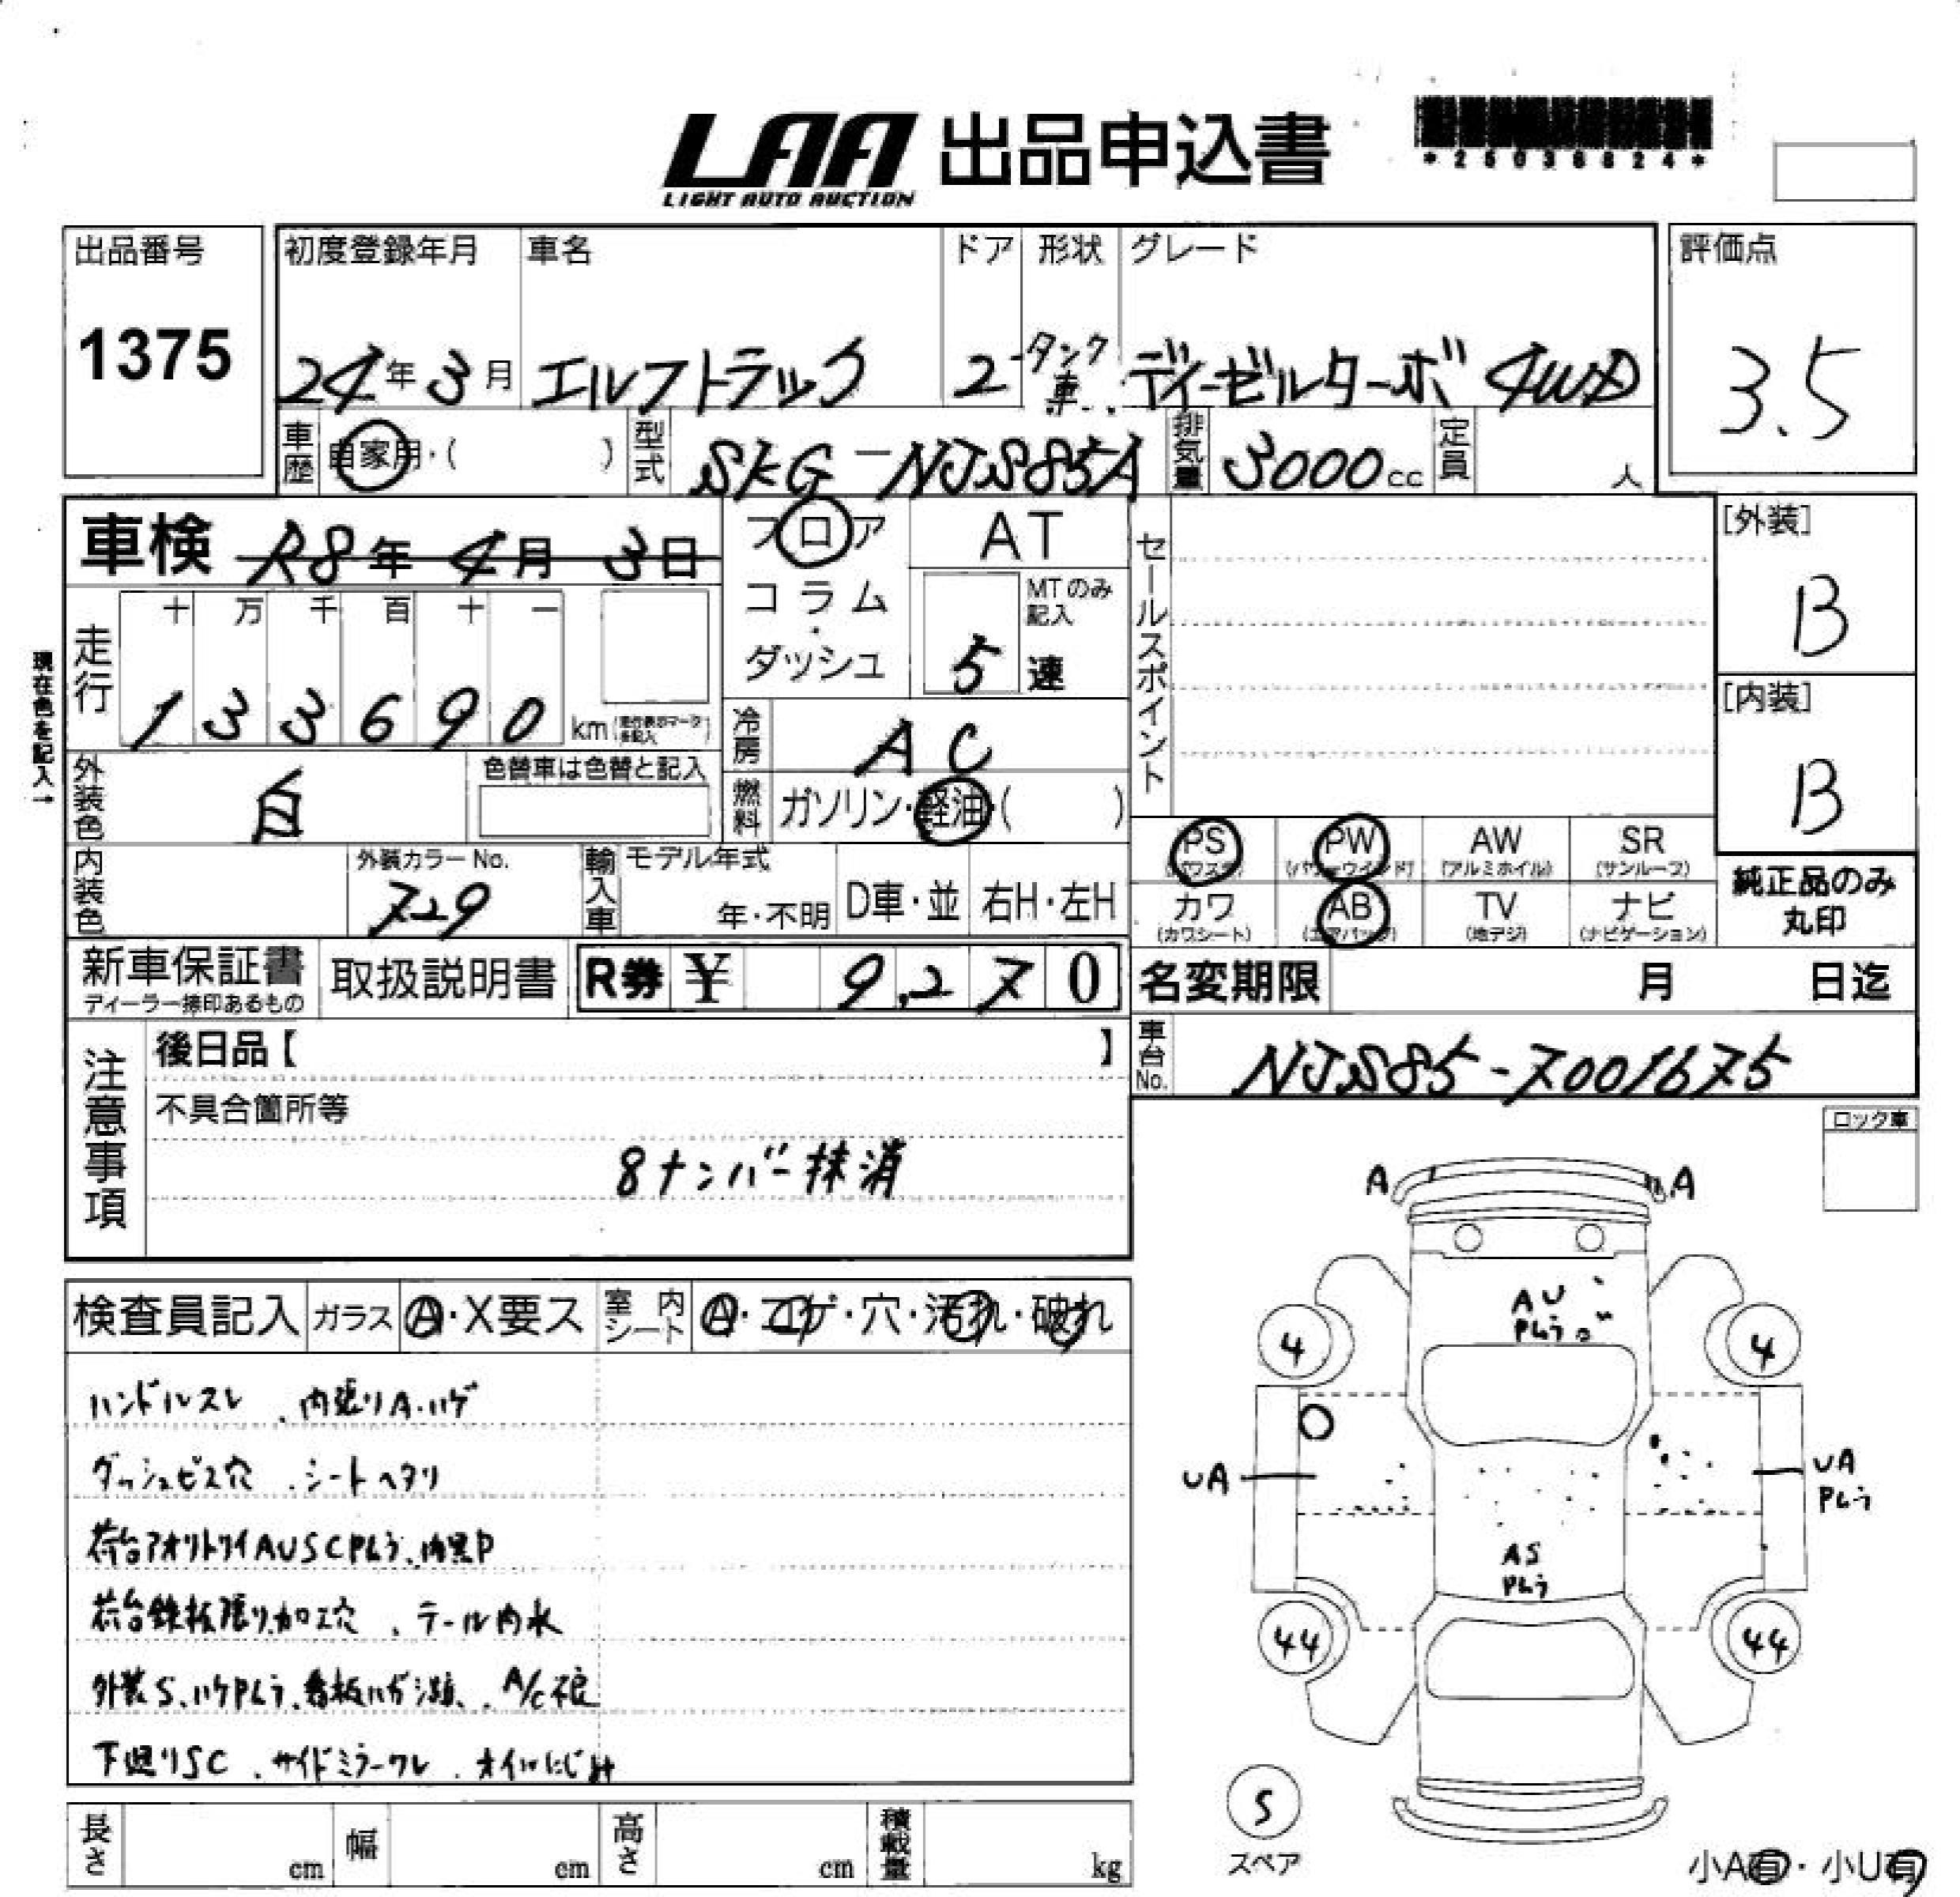 LAA 出品申込書
LIGHT AUTO AUCTION
*25036624*
出品番号
1375
初度登録年月
24年3月
車名
エルフトラック
ドア
2
形状
タンク車
グレード
ディーゼルターボ 4WD
評価点
3.5
車歴
自家用・( )
型式
SKG-NJS85A
排気量
3000cc
定員
人
車検 R8年4月3日
フロア
コラム・ダッシュ
AT
MTのみ記入
5速
セールスポイント
[外装]
B
[内装]
B
現在色を記入→
走行
十万千百十一
133690 km
冷房
AC
外装色
白
色替車は色替と記入
燃料
ガソリン・軽油・( )
PS
PW
(パワーウインド)
AW
(アルミホイル)
SR
(サンルーフ)
純正品のみ丸印
内装色
外装カラーNo.
729
輸入車
モデル年式
年・不明
D車・並
右H・左H
カワ
(カワシート)
AB
(エアバック)
TV
(地デジ)
ナビ
(ナビゲーション)
新車保証書
ディーラー捺印あるもの
取扱説明書
R券 ¥ 9,270
名変期限 月 日迄
車台No.
NJS85-7001675
注意事項
後日品【 】
不具合箇所等
8ナンバー抹消
ロック車
検査員記入
ガラス
A・X要ス
室内シート
A・コゲ・穴・汚れ・破れ
ハンドルスレ、内張りA・ハゲ
ダッシュビス穴、シートヘタリ
荷台アオリトリイAUSCPムラ、内黒P
荷台鉄板張り加工穴、テール内水
外装S、ハゲPムラ、看板ハガシ跡、A/C不良
下廻りSC、サイドミラーワレ、オイルにじみ
A
A
AU
Pムラ
4
4
UA
UA
Pムラ
AS
Pムラ
44
44
S
スペア
小A有・小U有
長さ cm
幅 cm
高さ cm
積載量 kg